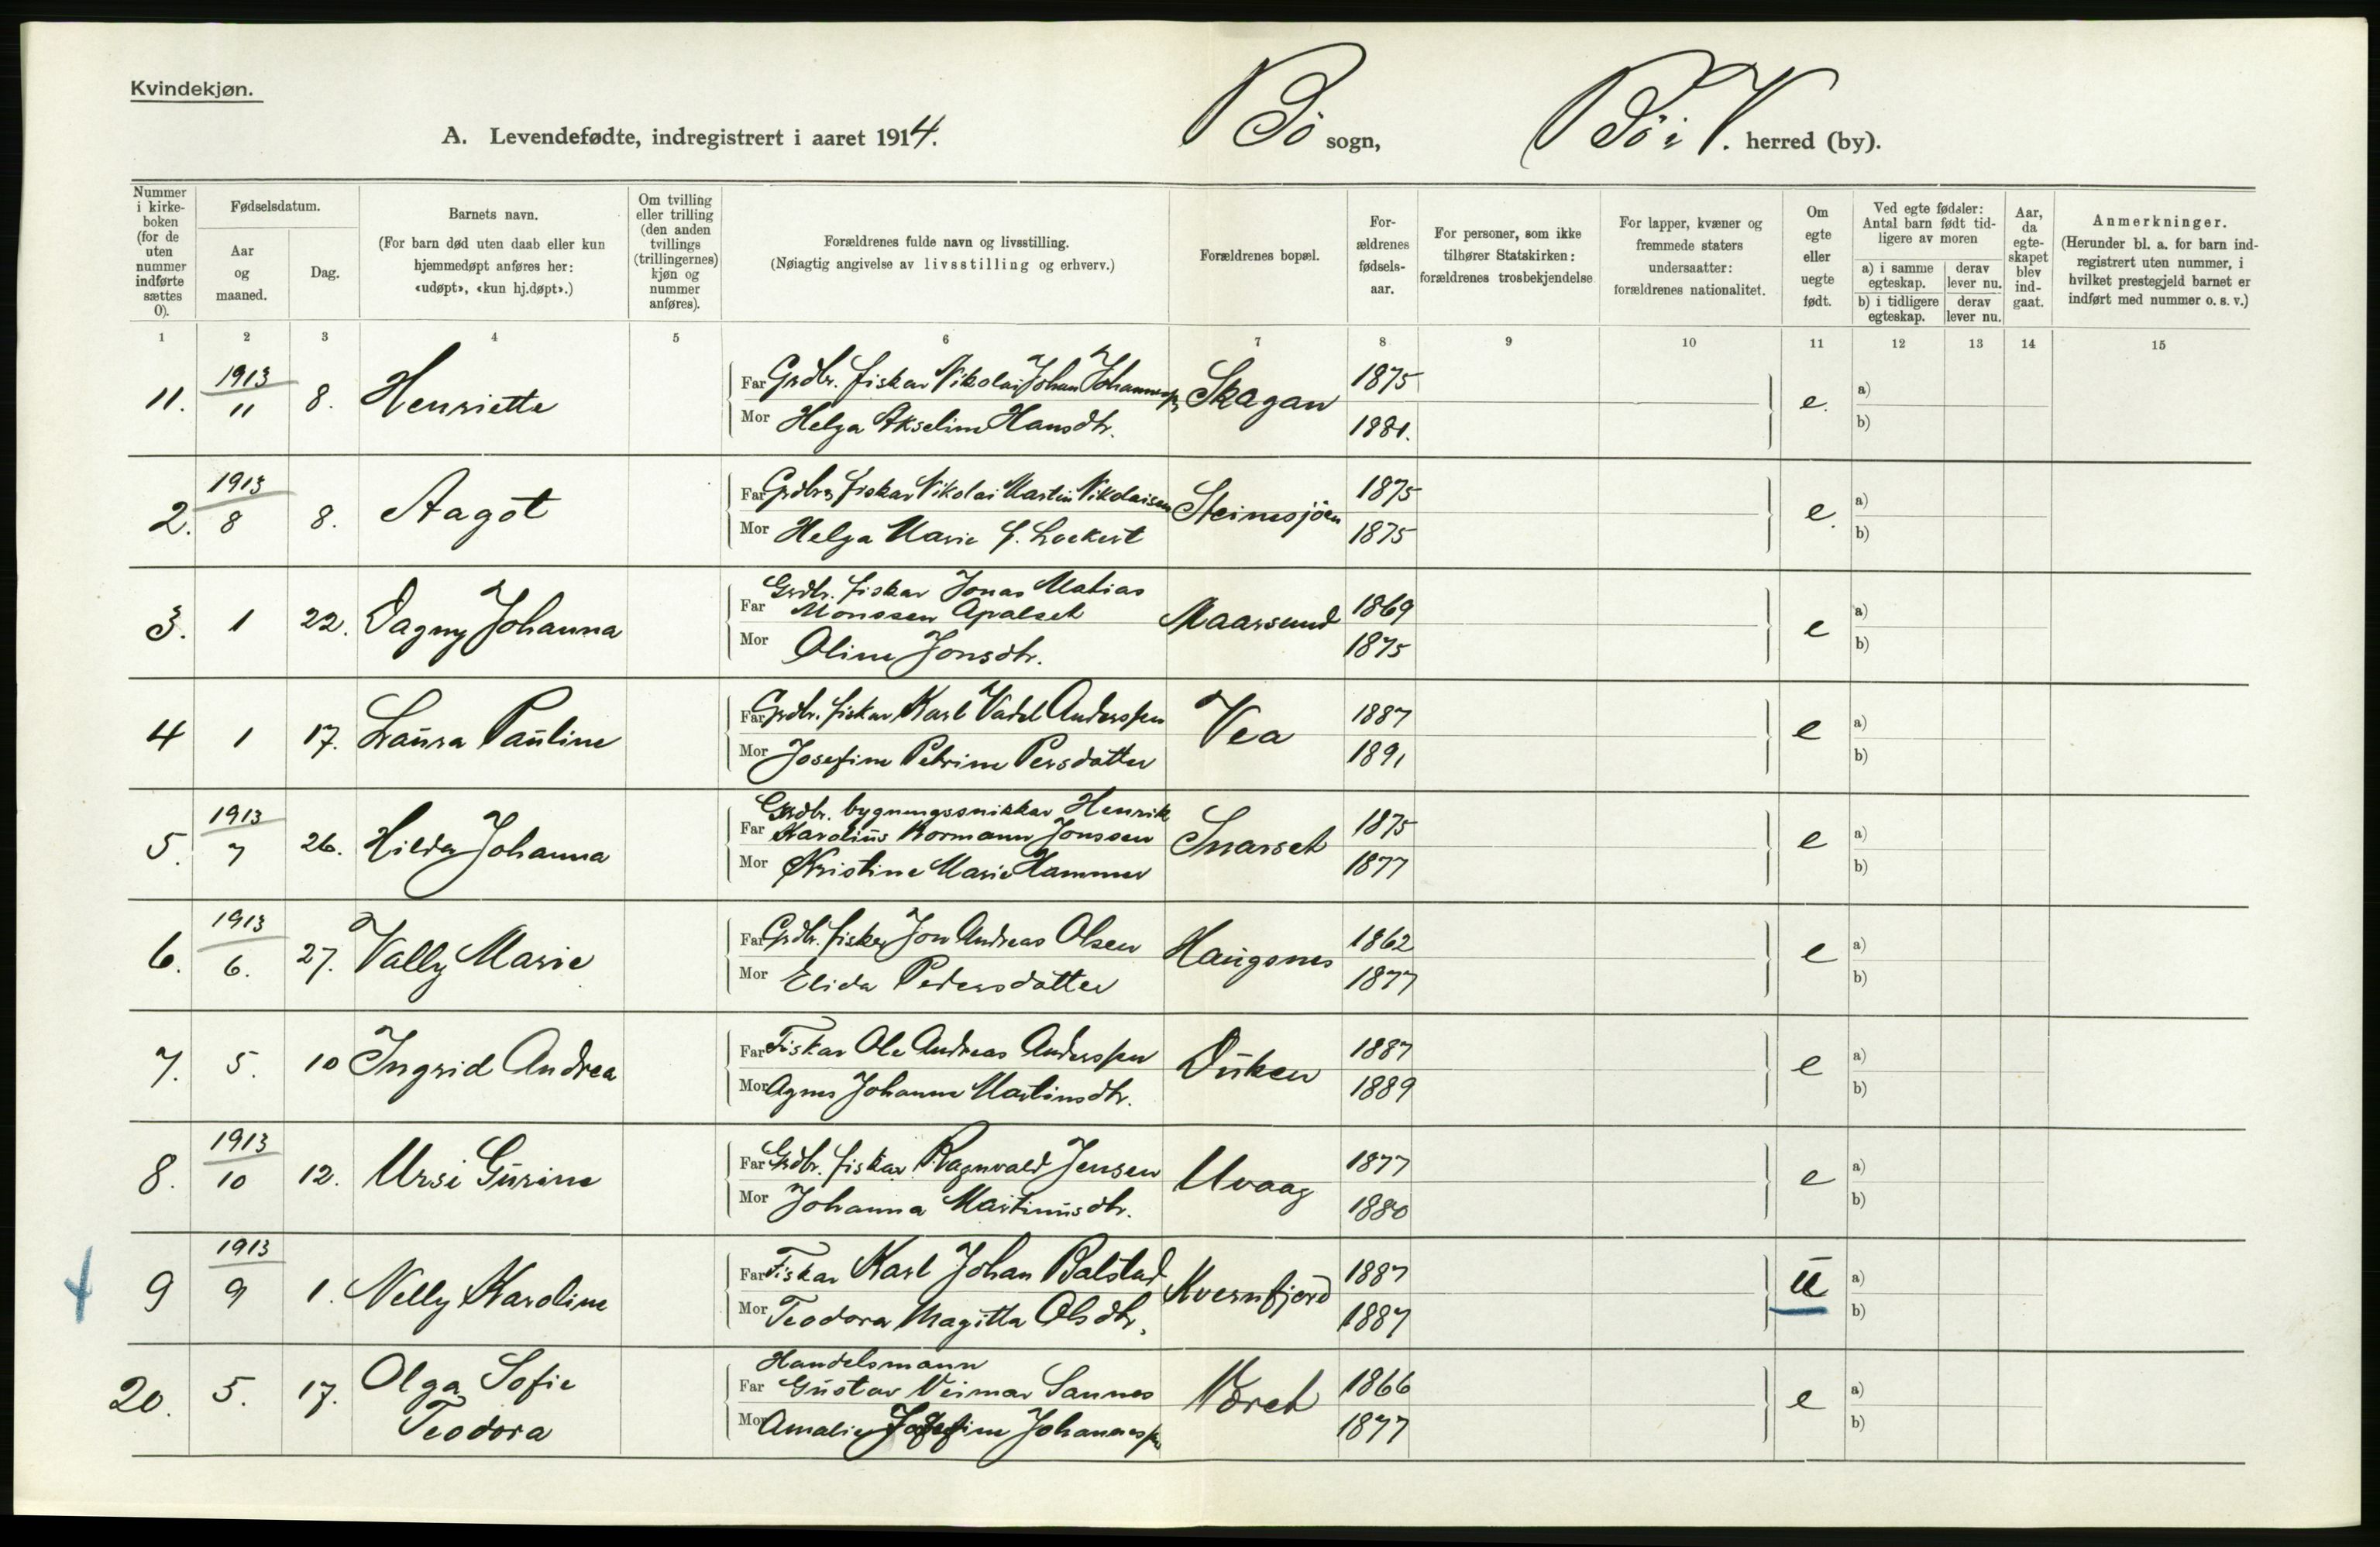 Kvindekjøn.
A. Levendefødte, indregistrert i aaret 1914.
Bö sogn, Bö i V. herred (by).
Nummer i kirke-boken (for de uten nummer indførte sættes 0).
Fødselsdatum.
Aar og maaned.
Dag.
Barnets navn.
(For barn død uten daab eller kun hjemmedøpt anføres her: «udøpt», «kun hj.døpt».)
Om tvilling eller trilling (den anden tvillings (trillingernes) kjøn og nummer anføres).
Forældrenes fulde navn og livsstilling.
(Nøiagtig angivelse av livsstilling og erhverv.)
Forældrenes bopæl.
For-ældrenes fødsels-aar.
For personer, som ikke tilhører Statskirken: forældrenes trosbekjendelse
For lapper, kvæner og fremmede staters undersaatter: forældrenes nationalitet.
Om egte eller uegte født.
Ved egte fødsler: Antal barn født tid-ligere av moren
a) i samme egteskap.
derav lever nu.
b) i tidligere egteskap.
derav lever nu.
Aar, da egte-skapet blev ind-gaat.
Anmerkninger.
(Herunder bl. a. for barn ind-registrert uten nummer, i hvilket prestegjeld barnet er indført med nummer o. s. v.)
1 2 3 4 5 6 7 8 9 10 11 12 13 14 15
11. 1913 11 8. Henriette Far Grdbr. fiskar Nikolai Johan Johannessen Skagan 1875 e. a)
Mor Helga Akseline Hansdtr. 1881. b)
2. 1913 8 8. Aagot Far Grdbr. fiskar Nikolai Martin Nikolaisen Steinesjöen 1875 e. a)
Mor Helga Marie J. Lockert 1875 b)
3. 1 22. Dagny Johanna Far Grdbr. fiskar Jonas Matias
Monssen Apalset Maarsund 1869 e a)
Mor Oline Jonsdtr. 1875 b)
4 1 17. Laura Pauline Far Grdbr. fiskar Karl Vadel Anderssen Vea 1887 e a)
Mor Josefine Petrine Persdatter 1891 b)
5. 1913 7 26. Hilda Johanna Far Grdbr. bygningssnikkar Henrik
Karolius Normann Jonssen Snarset 1875 e a)
Mor Kristine Marie Hammer 1877 b)
6. 1913 6. 27. Vally Marie Far Grdbr. fisker Jon Andreas Olsen Haugsnes 1862 e a)
Mor Elida Pedersdatter 1877 b)
7. 5. 10 Ingrid Andrea Far Fiskar Ole Andreas Anderssen Duken 1887 e a)
Mor Agnes Johanne Martinsdtr. 1889 b)
8. 1913 10 12. Ursi Gurine Far Grdbr. fiskar Ragnvald Jensen Uvaag 1877 e a)
Mor Johanna Martinusdtr. 1880 b)
9 1913 9 1. Nelly Karoline Far Fiskar Karl Johan Balstad Kvernfjord 1887 u a)
Mor Teodora Magitta Olsdtr. 1887 b)
20. 5. 17. Olga Sofie
Teodora Handelsmann
Far Gustav Veimar Sannes Vöret 1866 e a)
Mor Amalie Josefine Johannessen 1877 b)